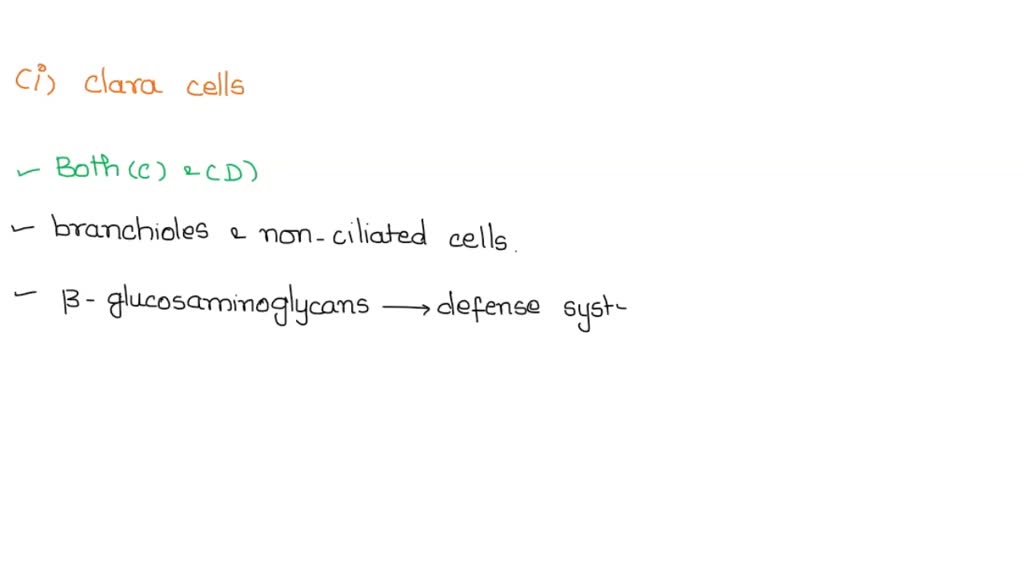 (i) clara cells
✓ Both (C) & (D)
✓ branchioles & non-ciliated cells.
✓ β-glucosaminoglycans → defense syst